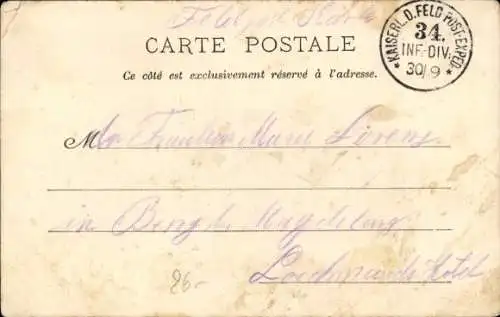 Feldpost Karte
CARTE POSTALE
KAISERL. D. FELD-POST-EXPED.
34.
INF.-DIV.
30/9
Ce côté est exclusivement réservé à l'adresse.
M Fräulein Marie Lorenz
in Burg b. Magdeburg
26.-